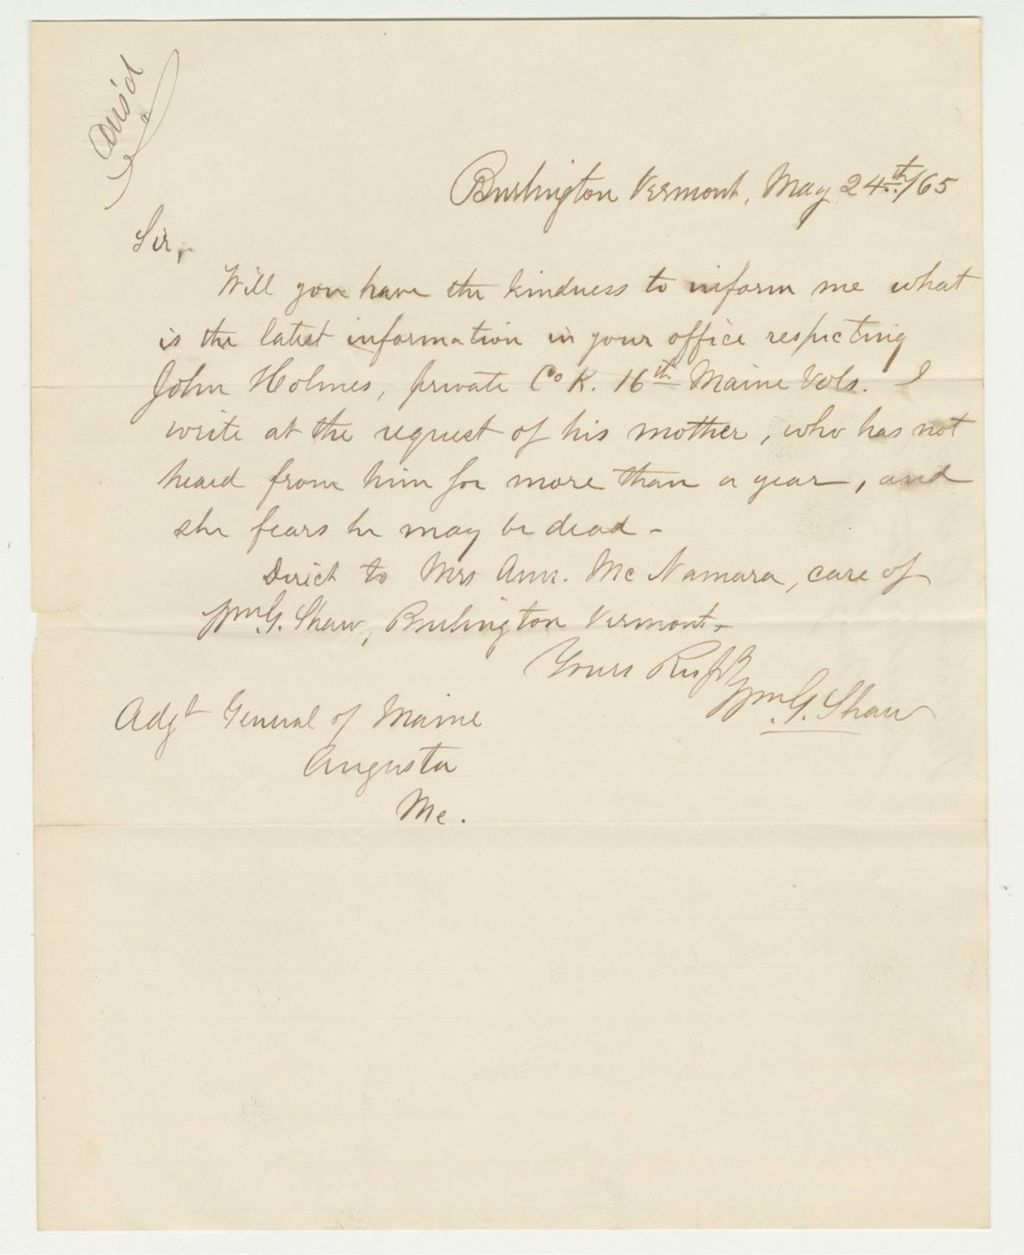 Ans'd
Burlington Vermont, May 24th/65
Sir,
Will you have the kindness to inform me what
is the latest information in your office respecting
John Holmes, private Co K. 16th Maine Vols. I
write at the request of his mother, who has not
heard from him for more than a year, and
she fears he may be dead -
Direct to Mrs Ann. McNamara, care of
Wm G. Shaw, Burlington Vermont -
Yours Respy
Wm. G. Shaw
Adgt General of Maine
Augusta
Me.